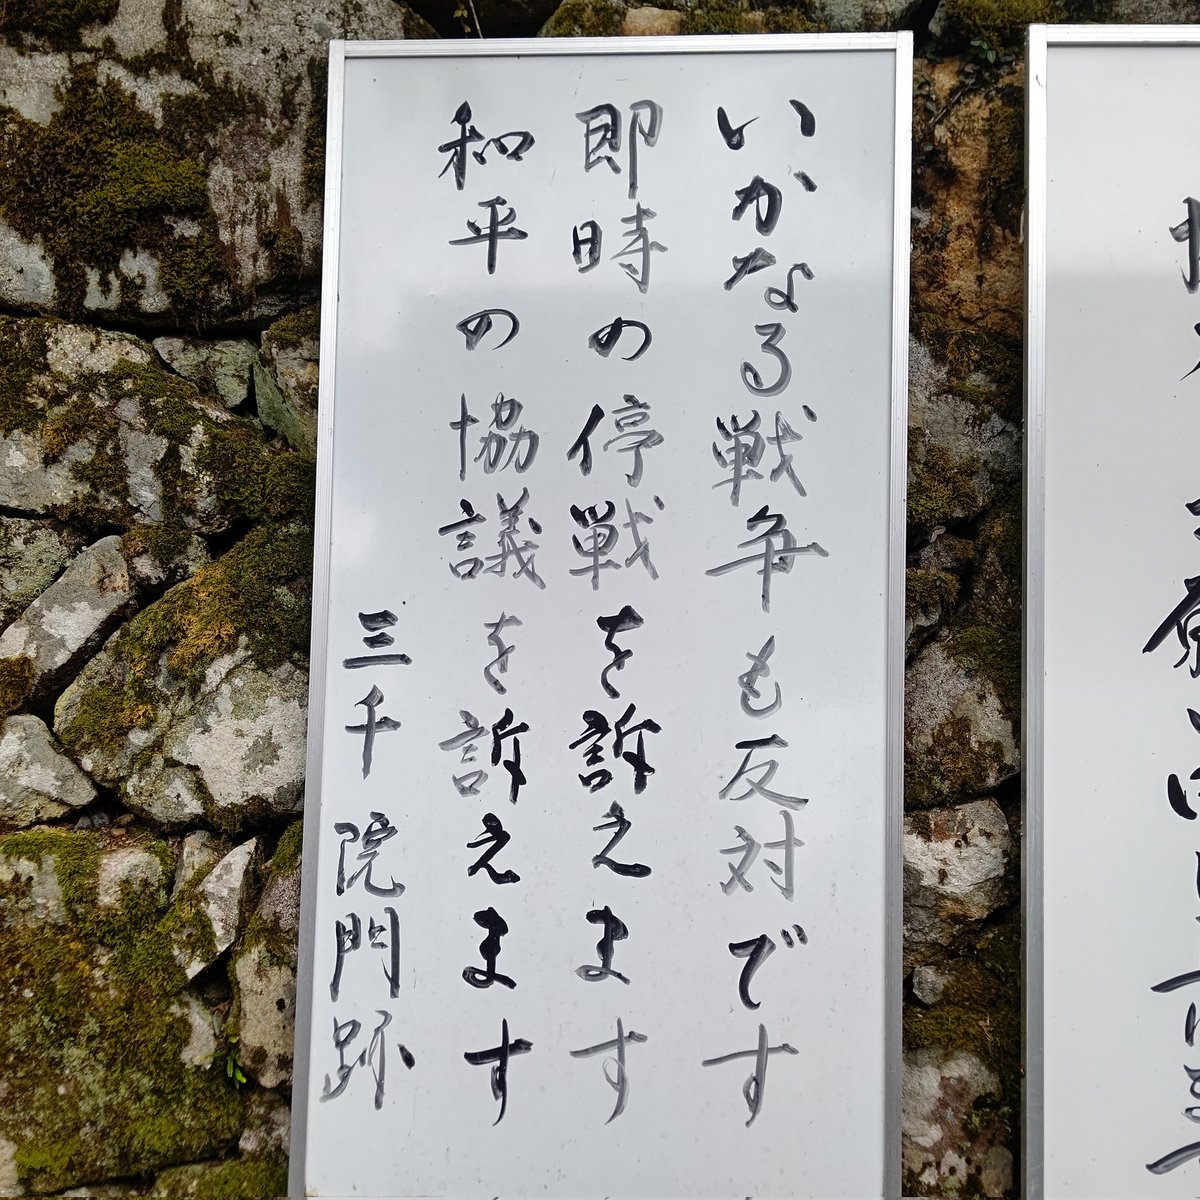 いかなる戦争も反対です
即時の停戦を訴えます
和平の協議を訴えます
三千院門跡